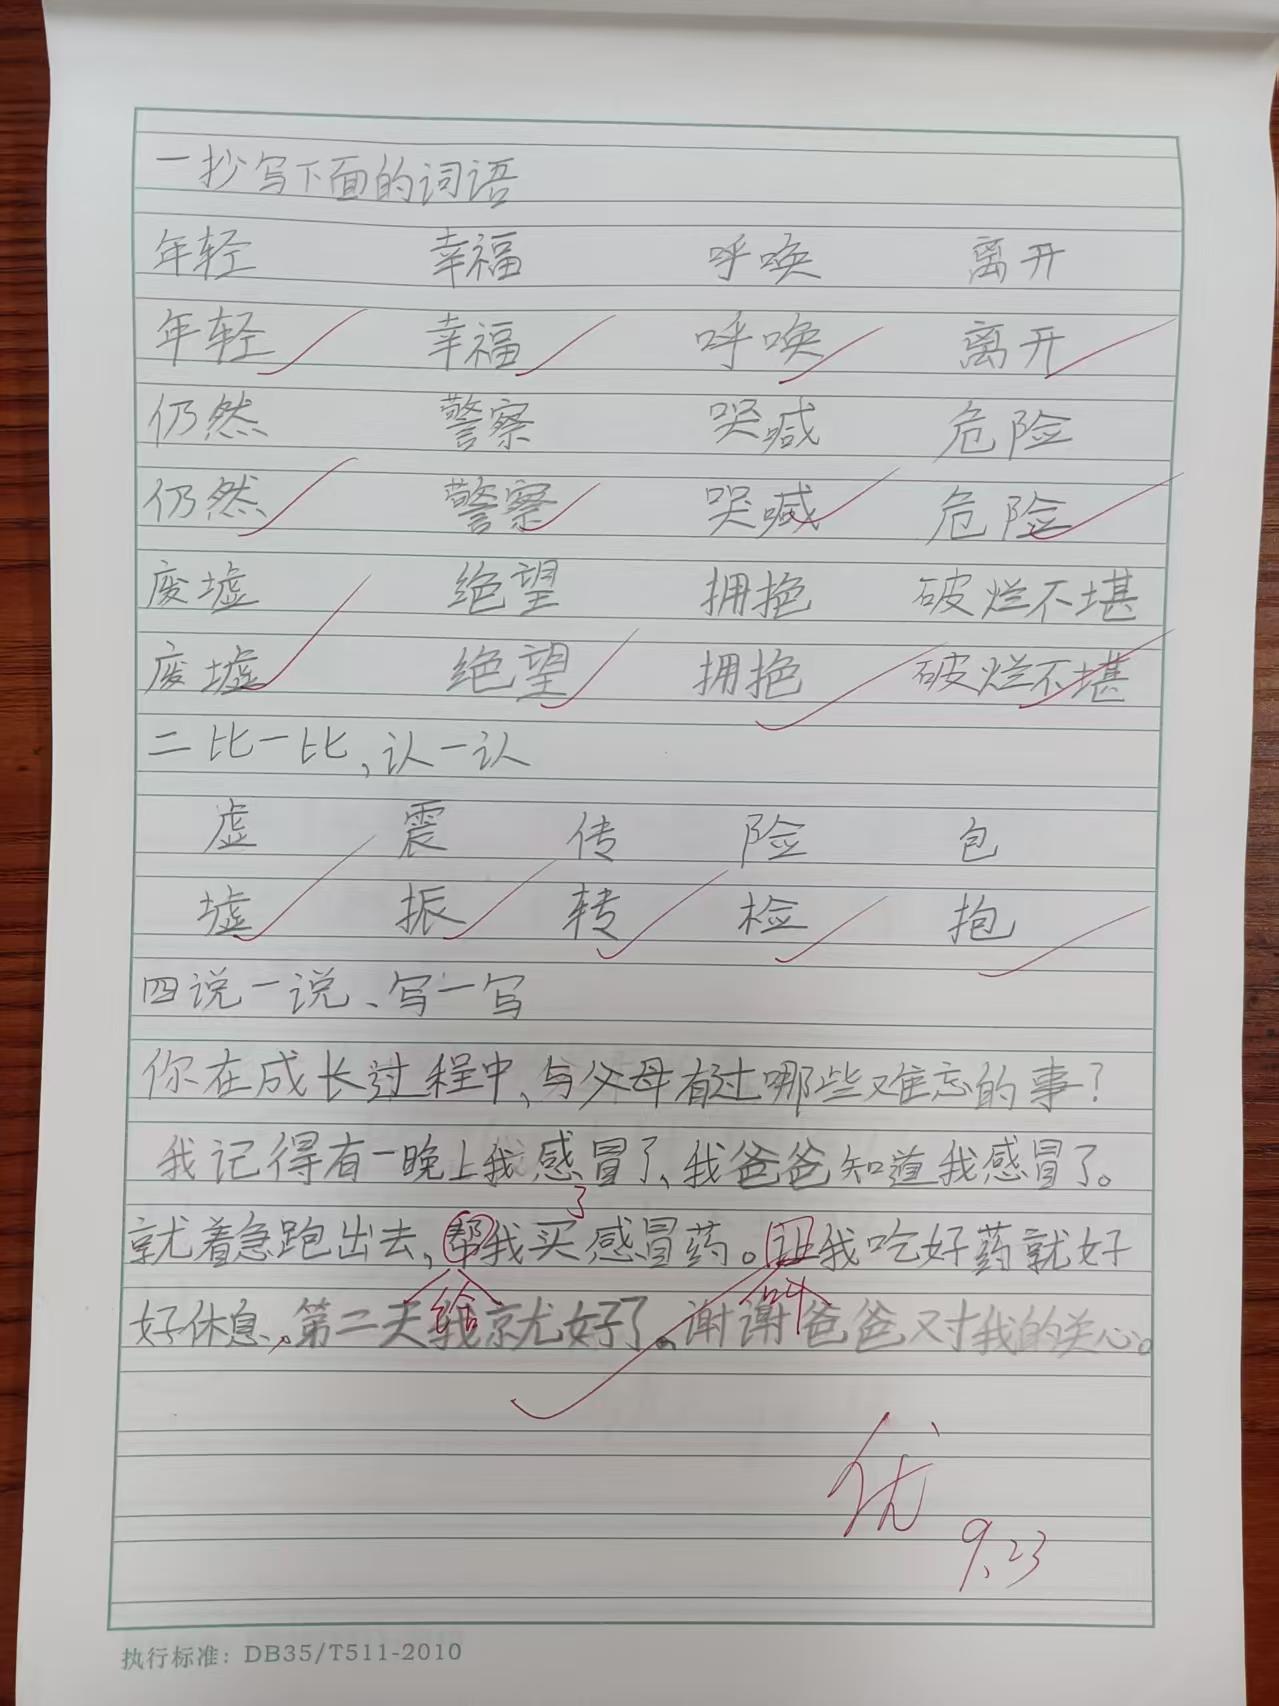 一抄写下面的词语
年轻 幸福 呼唤 离开
年轻 幸福 呼唤 离开
仍然 警察 哭喊 危险
仍然 警察 哭喊 危险
废墟 绝望 拥抱 破烂不堪
废墟 绝望 拥抱 破烂不堪
二比一比,认一认
虚 震 传 险 包
墟 振 转 检 抱
四说一说、写一写
你在成长过程中,与父母有过哪些难忘的事?
我记得有一晚上我感冒了,我爸爸知道我感冒了。
了
就着急跑出去,帮我买感冒药。让我吃好药就好
给 叫
好休息。第二天我就好了。谢谢爸爸对我的关心。
优
9.23
执行标准: DB35/T511-2010